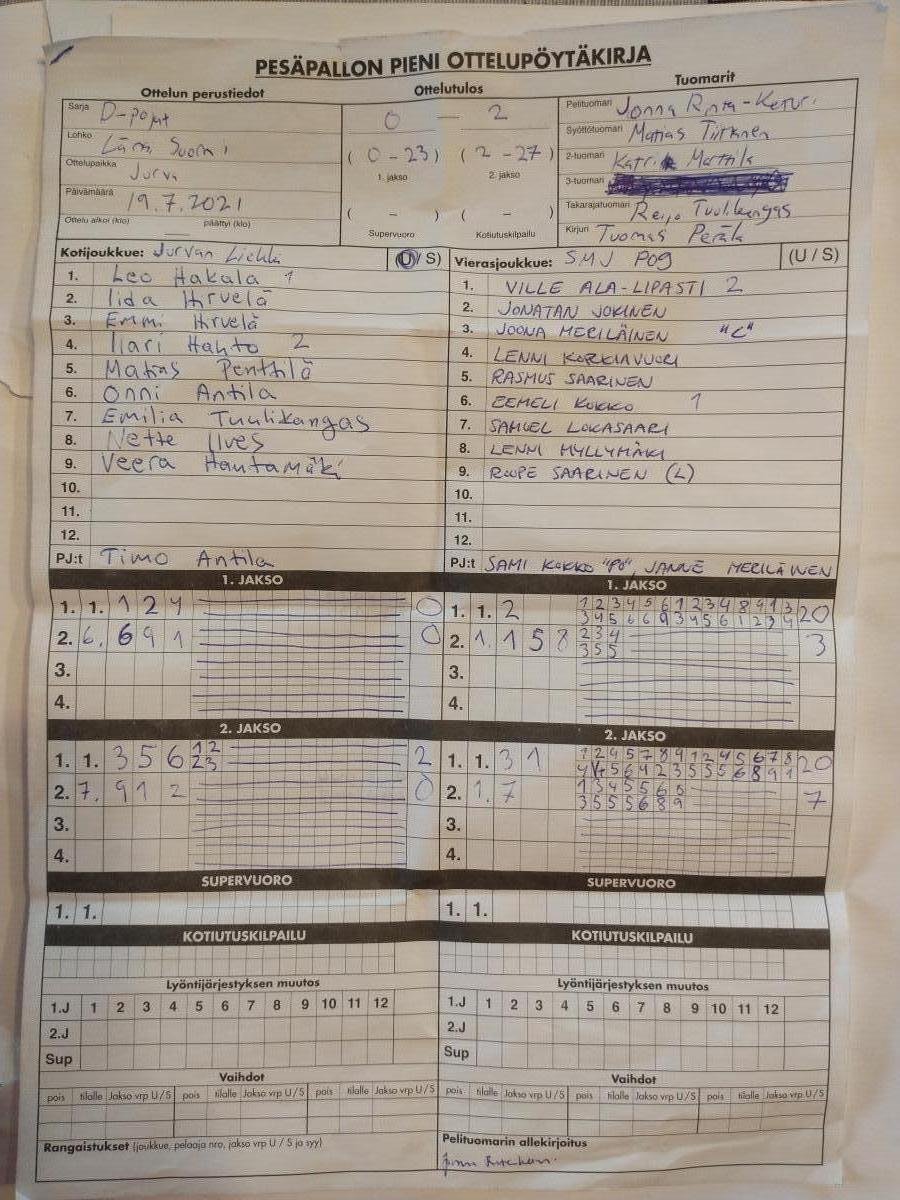 PESÄPALLON PIENI OTTELUPÖYTÄKIRJA
Ottelun perustiedot Ottelutulos Tuomarit
Sarja D-pojat
Lohko Länsi Suomi
Ottelupaikka Jurva
Päivämäärä 19.7.2021
Ottelu alkoi (klo) päättyi (klo)
0 — 2
( 0 - 23 ) ( 2 - 27 )
1. jakso 2. jakso
( - ) ( - )
Supervuoro Kotiutuskilpailu
Pelituomari Jonna Rinta-Keturi
Syöttötuomari Matias Tiitinen
2-tuomari Katri Marttila
3-tuomari
Takarajatuomari Reijo Tuulikangas
Kirjuri Tuomas Perälä
Kotijoukkue: Jurvan (U / S)
1. Leo Hakala 1
2. Iida Hirvelä
3. Emmi Hirvelä
4. Ilari Hahto 2
5. Matias Penttilä
6. Onni Antila
7. Emilia Tuulikangas
8. Nette Ilves
9. Veera Hautamäki
10.
11.
12.
PJ:t Timo Antila
Vierasjoukkue: SMJ POG (U / S)
1. VILLE ALA-LIPASTI 2
2. JONATAN JOKINEN
3. JOONA MERILÄINEN "C"
4. LENNI KORKIAVUORI
5. RASMUS SAARINEN
6. EEMELI KOKKO 1
7. SAMUEL LOKASAARI
8. LENNI MYLLYMÄKI
9. ROOPE SAARINEN (L)
10.
11.
12.
PJ:t SAMI KOKKO "PÖ", JANNE MERILÄINEN
1. JAKSO
1. 1. 1 2 4 0
2. 6. 6 9 1 0
3.
4.
1. JAKSO
1. 1. 2 1 2 3 4 5 6 1 2 3 4 8 9 1 3 20
3 4 5 6 6 9 3 4 5 6 1 2 3 4
2. 1. 1 5 8 2 3 4 3
3 5 5
3.
4.
2. JAKSO
1. 1. 3 5 6 1 2 2
2 3
2. 7. 9 1 2 0
3.
4.
2. JAKSO
1. 1. 3 1 1 2 4 5 7 8 9 1 2 4 5 6 7 8 20
4 5 6 4 2 3 5 5 5 6 8 9 1
2. 1. 7 1 3 4 5 5 6 8 7
3 5 5 5 6 8 9
3.
4.
SUPERVUORO
1. 1.
SUPERVUORO
1. 1.
KOTIUTUSKILPAILU
KOTIUTUSKILPAILU
Lyöntijärjestyksen muutos
1.J 1 2 3 4 5 6 7 8 9 10 11 12
2.J
Sup
Lyöntijärjestyksen muutos
1.J 1 2 3 4 5 6 7 8 9 10 11 12
2.J
Sup
Vaihdot
pois tilalle Jakso vrp U / S pois tilalle Jakso vrp U / S pois tilalle Jakso vrp U / S
Vaihdot
pois tilalle Jakso vrp U / S pois tilalle Jakso vrp U / S pois tilalle Jakso vrp U / S
Rangaistukset (joukkue, pelaaja nro, jakso vrp U / S ja syy)
Pelituomarin allekirjoitus